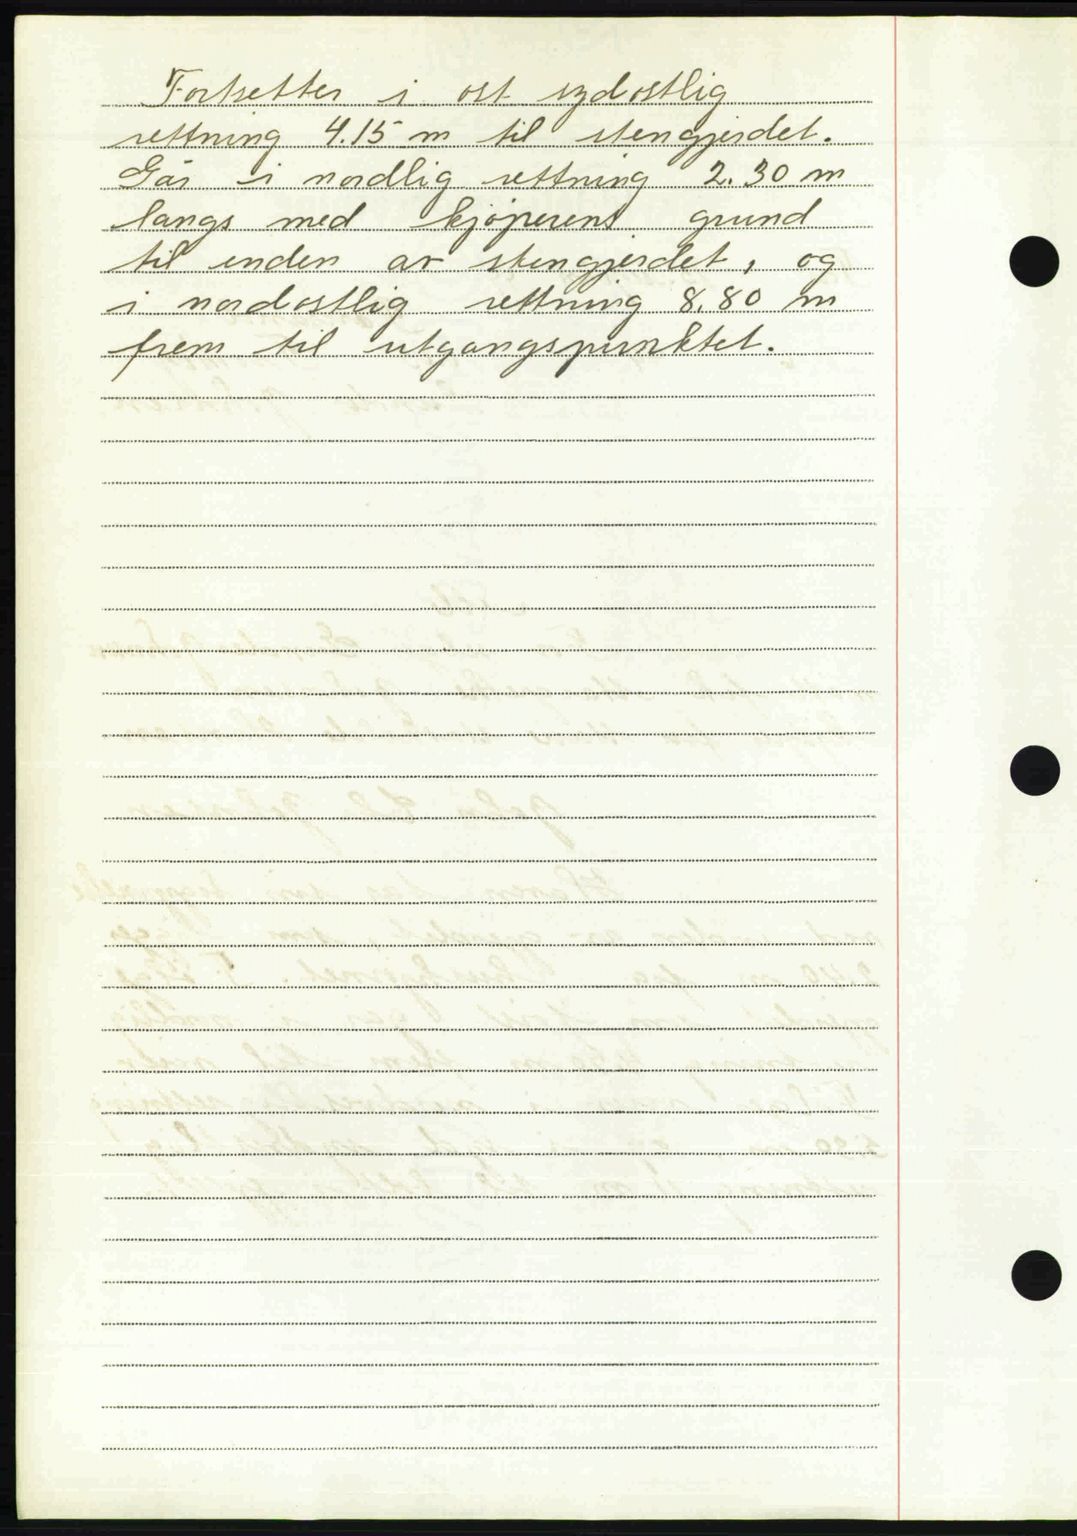 Fortsetter i ost sydostlig
rettning 4.15 m til stengjerdet.
Går i nordlig rettning 2.30 m
langs med kjøperens grund
til enden av stengjerdet, og
i nordostlig rettning 8.80 m
frem til utgangspunktet.